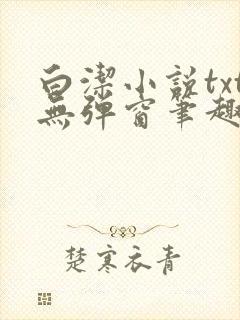 白潔小说txt
無弹窗笔趣
楚寒衣青